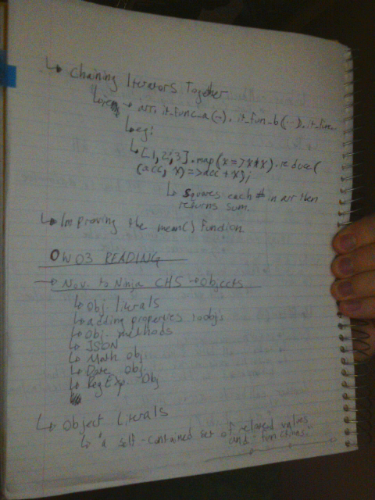 ↳ Chaining Iterators Together
↳ arr.it_func_a(~).it_fun_b(~).it_func
↳ eg:
↳ [1,2,3].map(x=>x*x).reduce(
(acc, x)=>acc + x);
↳ Squares each # in arr then
returns sum.
↳ Improving the mean() function
W03 READING
→ Novice to Ninja CH5 → Objects
↳ Obj literals
↳ adding properties to obj
↳ Obj methods
↳ JSON
↳ Math Obj
↳ Date Obj
↳ RegExp Obj
↳ Object Literals
↳ "a self-contained set of related values
and functions"